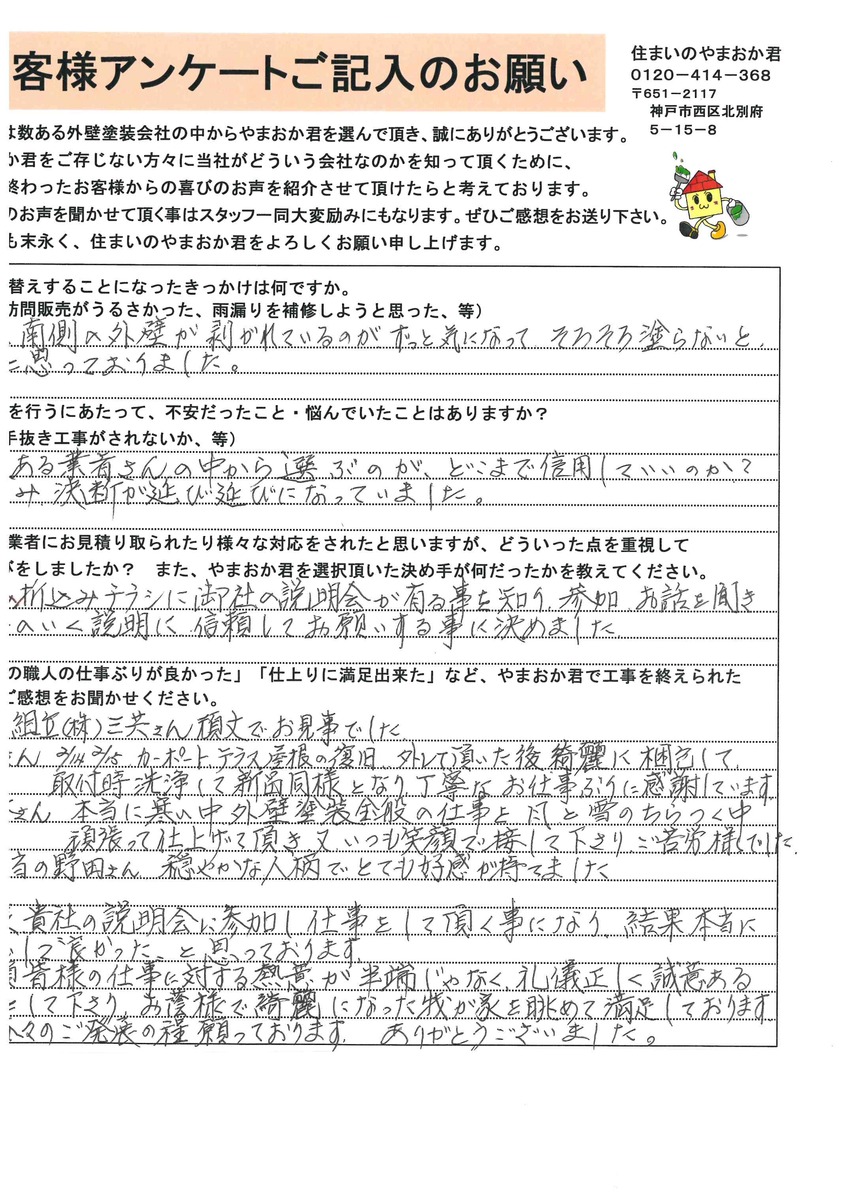 客様アンケートご記入のお願い
住まいのやまおか君
0120－414－368
〒651－2117
神戸市西区北別府
5－15－8
は数ある外壁塗装会社の中からやまおか君を選んで頂き、誠にありがとうございます。
か君をご存じない方々に当社がどういう会社なのかを知って頂くために、
終わったお客様からの喜びのお声を紹介させて頂けたらと考えております。
のお声を聞かせて頂く事はスタッフ一同大変励みにもなります。ぜひご感想をお送り下さい。
も末永く、住まいのやまおか君をよろしくお願い申し上げます。
替えすることになったきっかけは何ですか。
訪問販売がうるさかった、雨漏りを補修しようと思った、等）
南側の外壁が剥がれているのがずっと気になって そろそろ塗らないと、
と思っておりました。
を行うにあたって、不安だったこと・悩んでいたことはありますか？
手抜き工事がされないか、等）
ある業者さんの中から選ぶのが、どこまで信用していいのか？
み 決断が延び延びになっていました。
業者にお見積り取られたり様々な対応をされたと思いますが、どういった点を重視して
をしましたか？ また、やまおか君を選択頂いた決め手が何だったかを教えてください。
折込みチラシに御社の説明会が有る事を知り、参加 お話を聞き
のいく説明に 信頼してお願いする事に決めました
の職人の仕事ぶりが良かった」「仕上りに満足出来た」など、やまおか君で工事を終えられた
ご感想をお聞かせください。
組立(株)三共さん 頑丈でお見事でした
さん 2/14 2/15 カーポート、テラス屋根の復旧 外して頂いた後綺麗に梱包して
取付時洗浄して新品同様となり丁寧なお仕事ぶりに感謝しています
さん 本当に寒い中 外壁塗装全般の仕事を 風と雪のちらつく中
頑張って仕上げて頂き又、いつも笑顔で接して下さり、ご苦労様でした.
当の野田さん 穏やかな人柄でとても好感が持てました
貴社の説明会に参加し仕事をして頂く事になり、結果本当に
して良かった、と思っております
皆様の仕事に対する熱意が半端じゃなく、礼儀正しく誠意ある
して下さり、お蔭様で綺麗になった我が家を眺めて満足しております
々のご発展の程願っております. ありがとうございました。